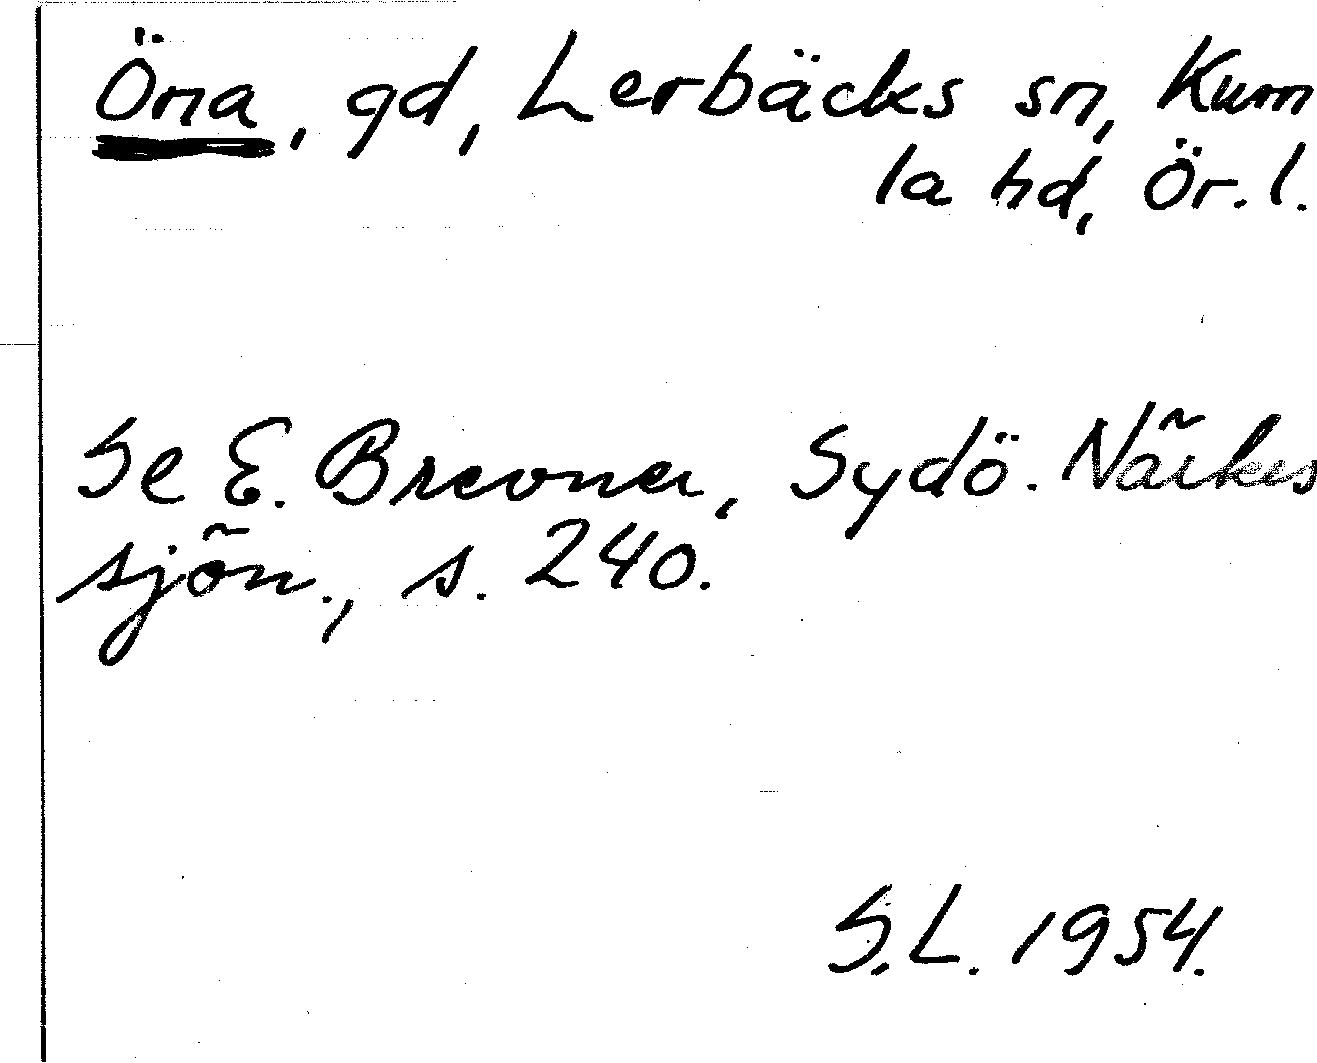 Öna, gd, Lerbäcks sn, Kum
la hd, Ör. l.
Se E. Brevner, Sydö. Närkes
sjön., s. 240.
S.L. 1954.